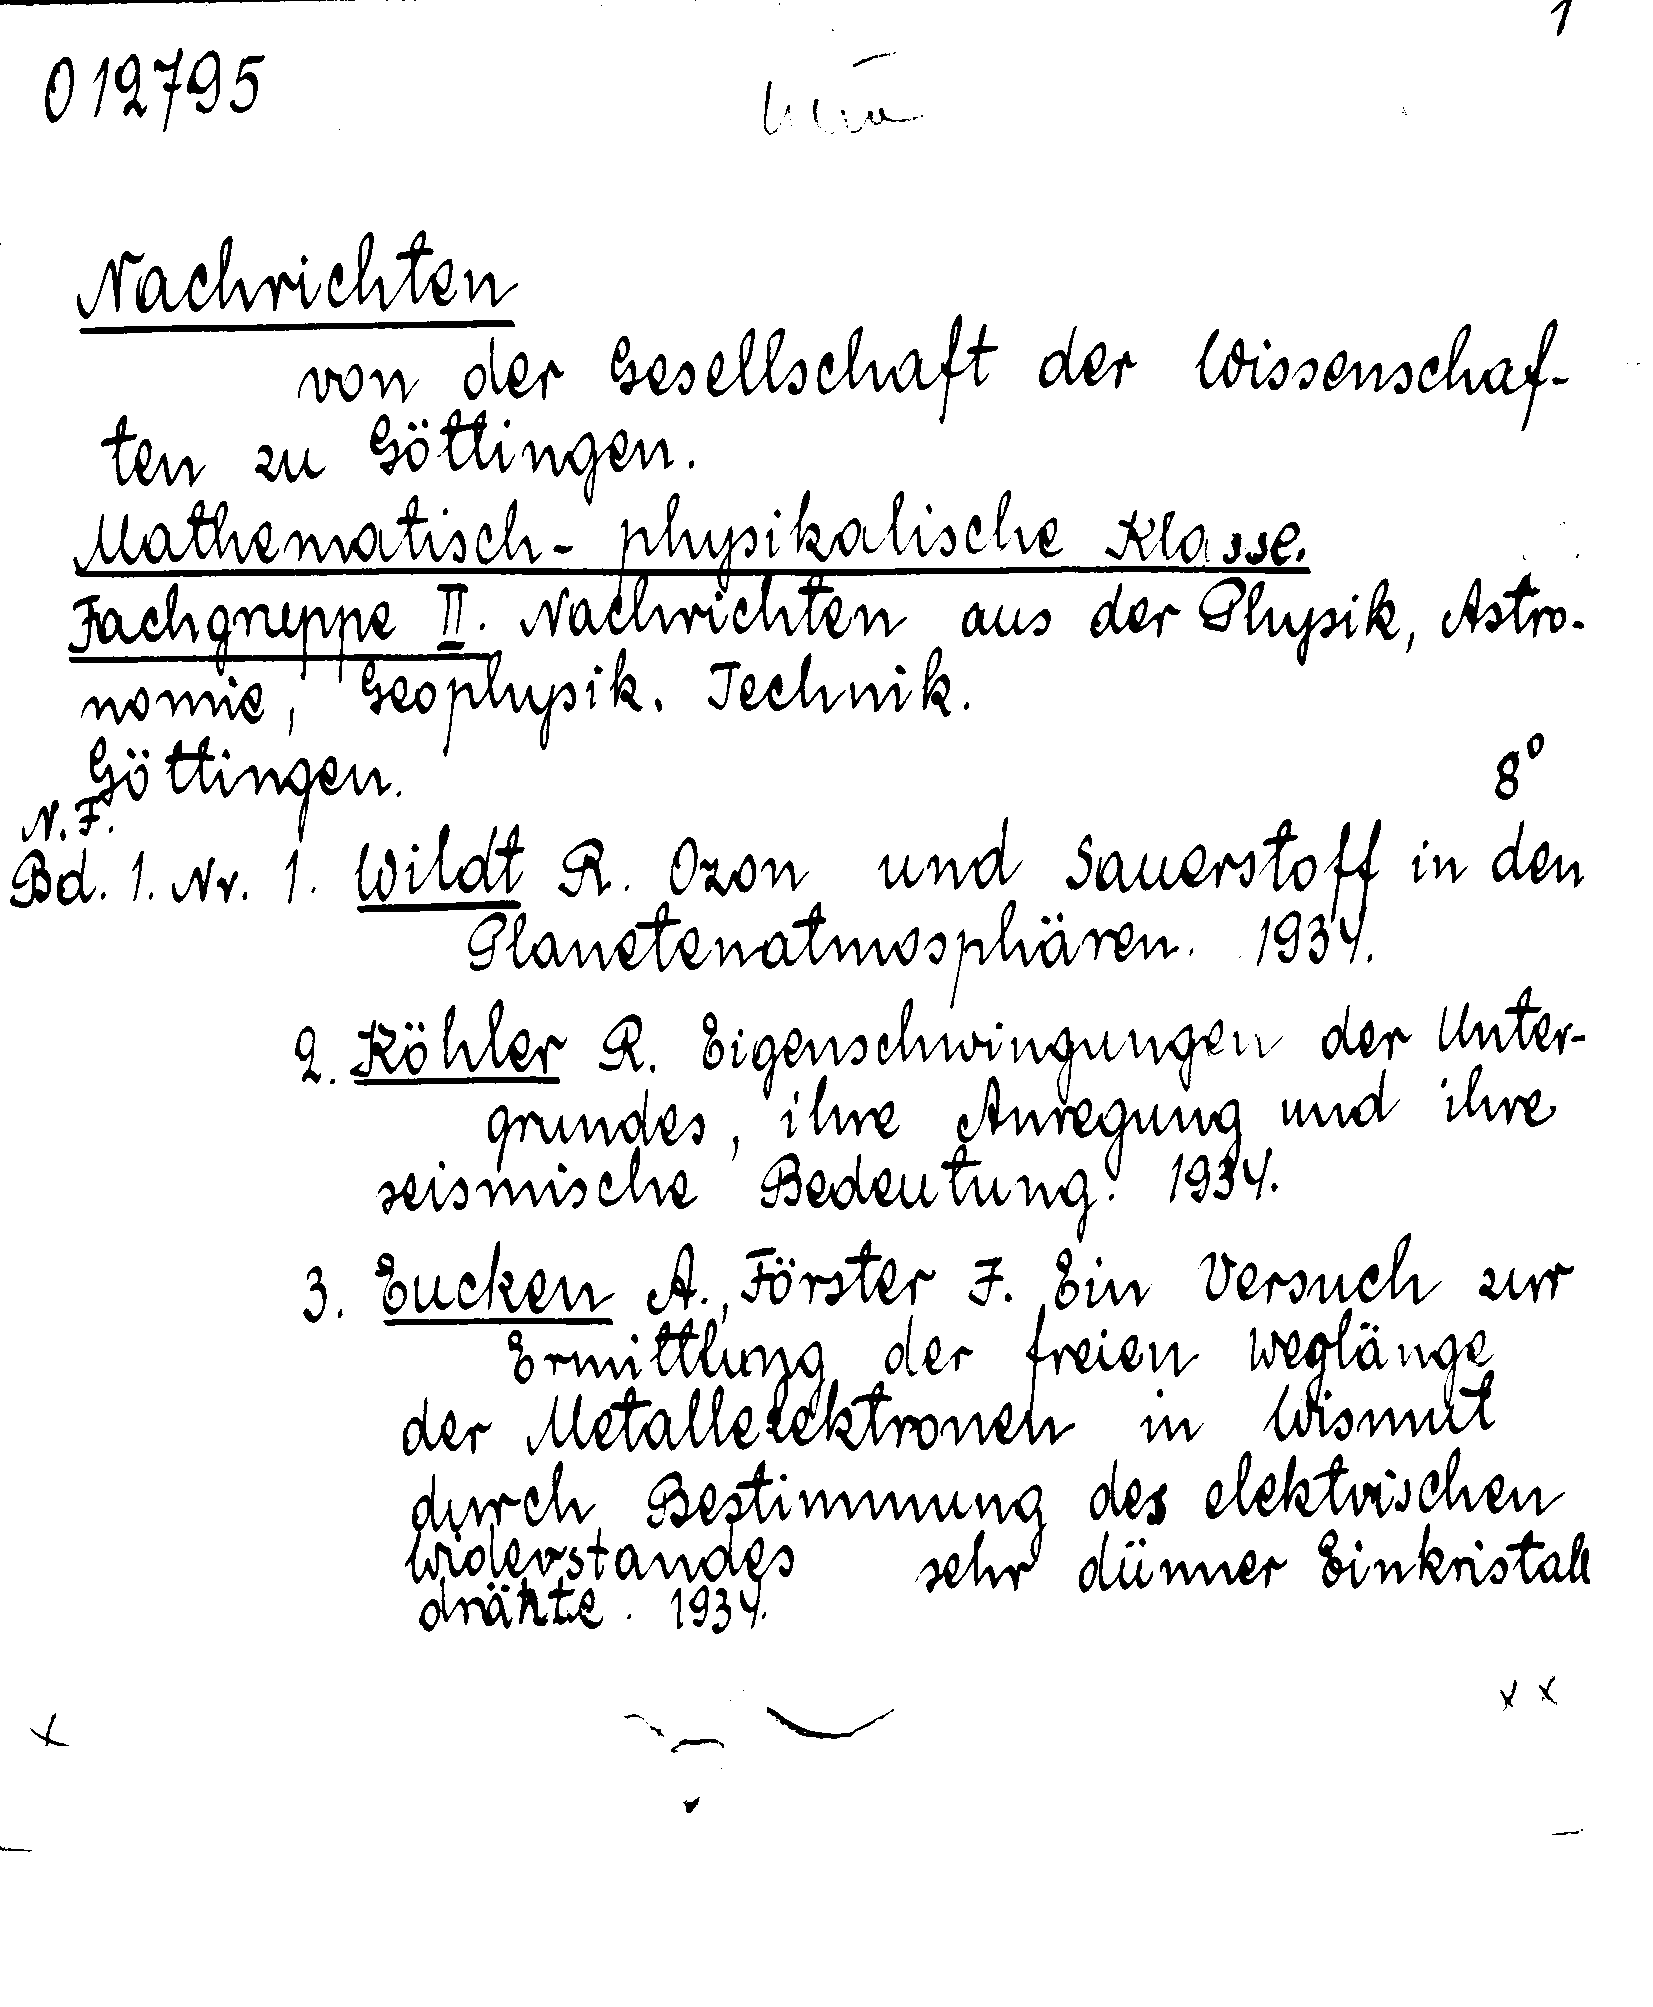 1
012795
Nachrichten
von der Gesellschaft der Wissenschaf-
ten zu Göttingen.
Mathematisch-physikalische Klasse.
Fachgruppe II. Nachrichten aus der Physik, Astro-
nomie, Geophysik. Technik.
Göttingen. 8°
N.F.
Bd. 1. Nr. 1. Wildt R. Ozon und Sauerstoff in den
Planetenatmosphären. 1934.
2. Köhler R. Eigenschwingungen der Unter-
grundes, ihre Anregung und ihre
seismische Bedeutung. 1934.
3. Eucken A., Förster F. Ein Versuch zur
Ermittlung der freien Weglänge
der Metallelektronen in Wismut
durch Bestimmung des elektrischen
Widerstandes sehr dünner Einkristall
drähte. 1934.
x x
x